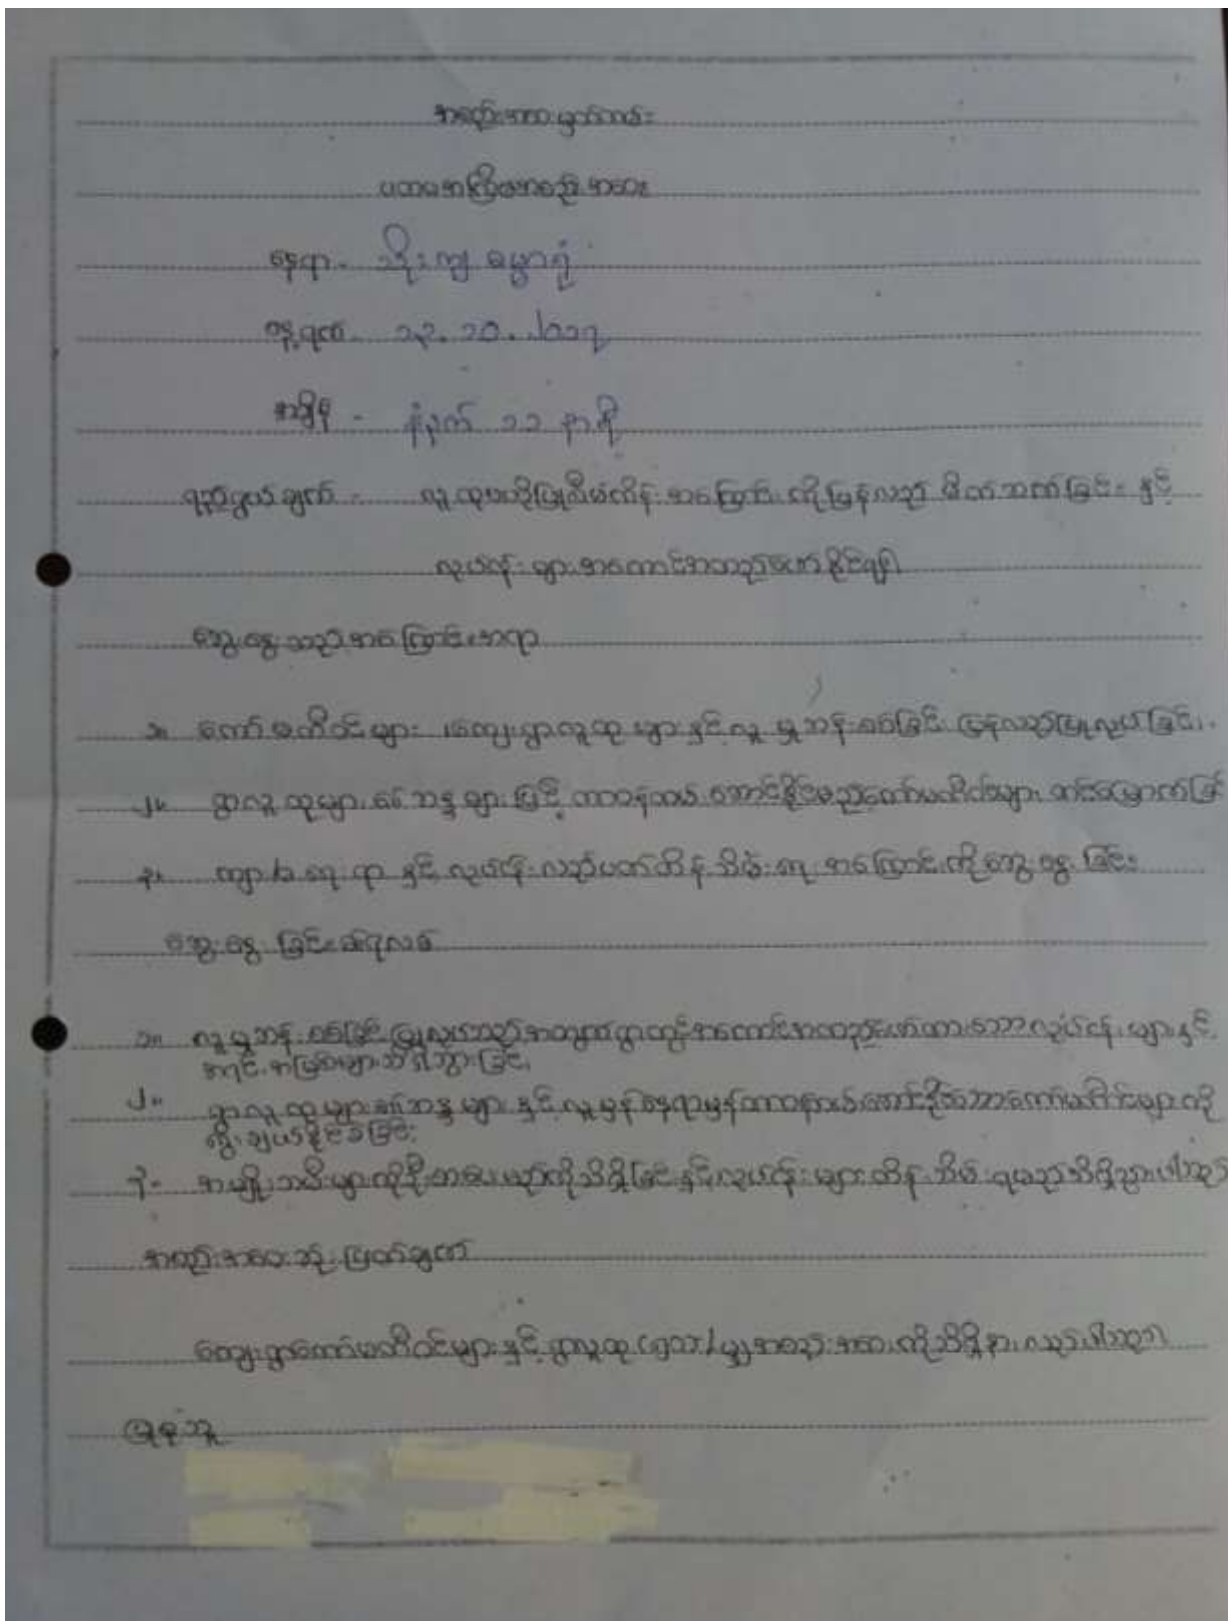 အစည်းအဝေးမှတ်တမ်း
ပထမအကြိမ်အစည်းအဝေး
နေရာ - သိုးကျ ဓမ္မာရုံ
နေ့ရက် - ၁၃.၁၀.၂၀၁၇
အချိန် - နံနက် ၁၁ နာရီ
ရည်ရွယ်ချက် - လူထုပဟိုပြုစီမံကိန်းအကြောင်းကိုပြန်လည် မိတ်ဆက်ခြင်း နှင့်
လုပ်ငန်းများအကောင်အထည်ဖော်နိုင်ရန်
ဆွေးနွေးသည့်အကြောင်းအရာ
၁။ ကော်မတီဝင်များ၊ ကျေးရွာလူထုများနှင့်လူမှုဆန်းစစ်ခြင်း ပြန်လည်ပြုလုပ်ခြင်း
၂။ ရွာလူထုများ၏ဆန္ဒများဖြင့် တာဝန်ထမ်းဆောင်နိုင်မည့်ကော်မတီဝင်များ တင်မြှောက်ခြင်း
၃။ ကျား/မ ရေးရာ နှင့် လုပ်ငန်းလည်ပတ်ထိန်းသိမ်းရေး အကြောင်းကိုဆွေးနွေးခြင်း
ဆွေးနွေးခြင်းရလဒ်
၁။ လူမှုဆန်းစစ်ခြင်းပြုလုပ်သည့်အတွက်ရွာတွင်အကောင်အထည်ဖော်ထားသောလုပ်ငန်းများနှင့်
အရင်းအမြစ်များသိရှိသွားခြင်း
၂။ ရွာလူထုများ၏ဆန္ဒများနှင့်လူမှန်နေရာမှန်တာဝန်ထမ်းဆောင်နိုင်သောကော်မတီဝင်များကို
ရွေးချယ်နိုင်ခဲ့ခြင်း
၃။ အမျိုးသမီးများကိုဦးစားပေးမည်ကိုသိရှိခြင်းနှင့်လုပ်ငန်းများထိန်းသိမ်းရမည်သိရှိသွားပါသည်
အစည်းအဝေးဆုံးဖြတ်ချက်
ကျေးရွာကော်မတီဝင်များနှင့်ရွာလူထု မှအစည်းအဝေးကိုသိရှိနားလည်ပါသည်။
ပြုစုသူ